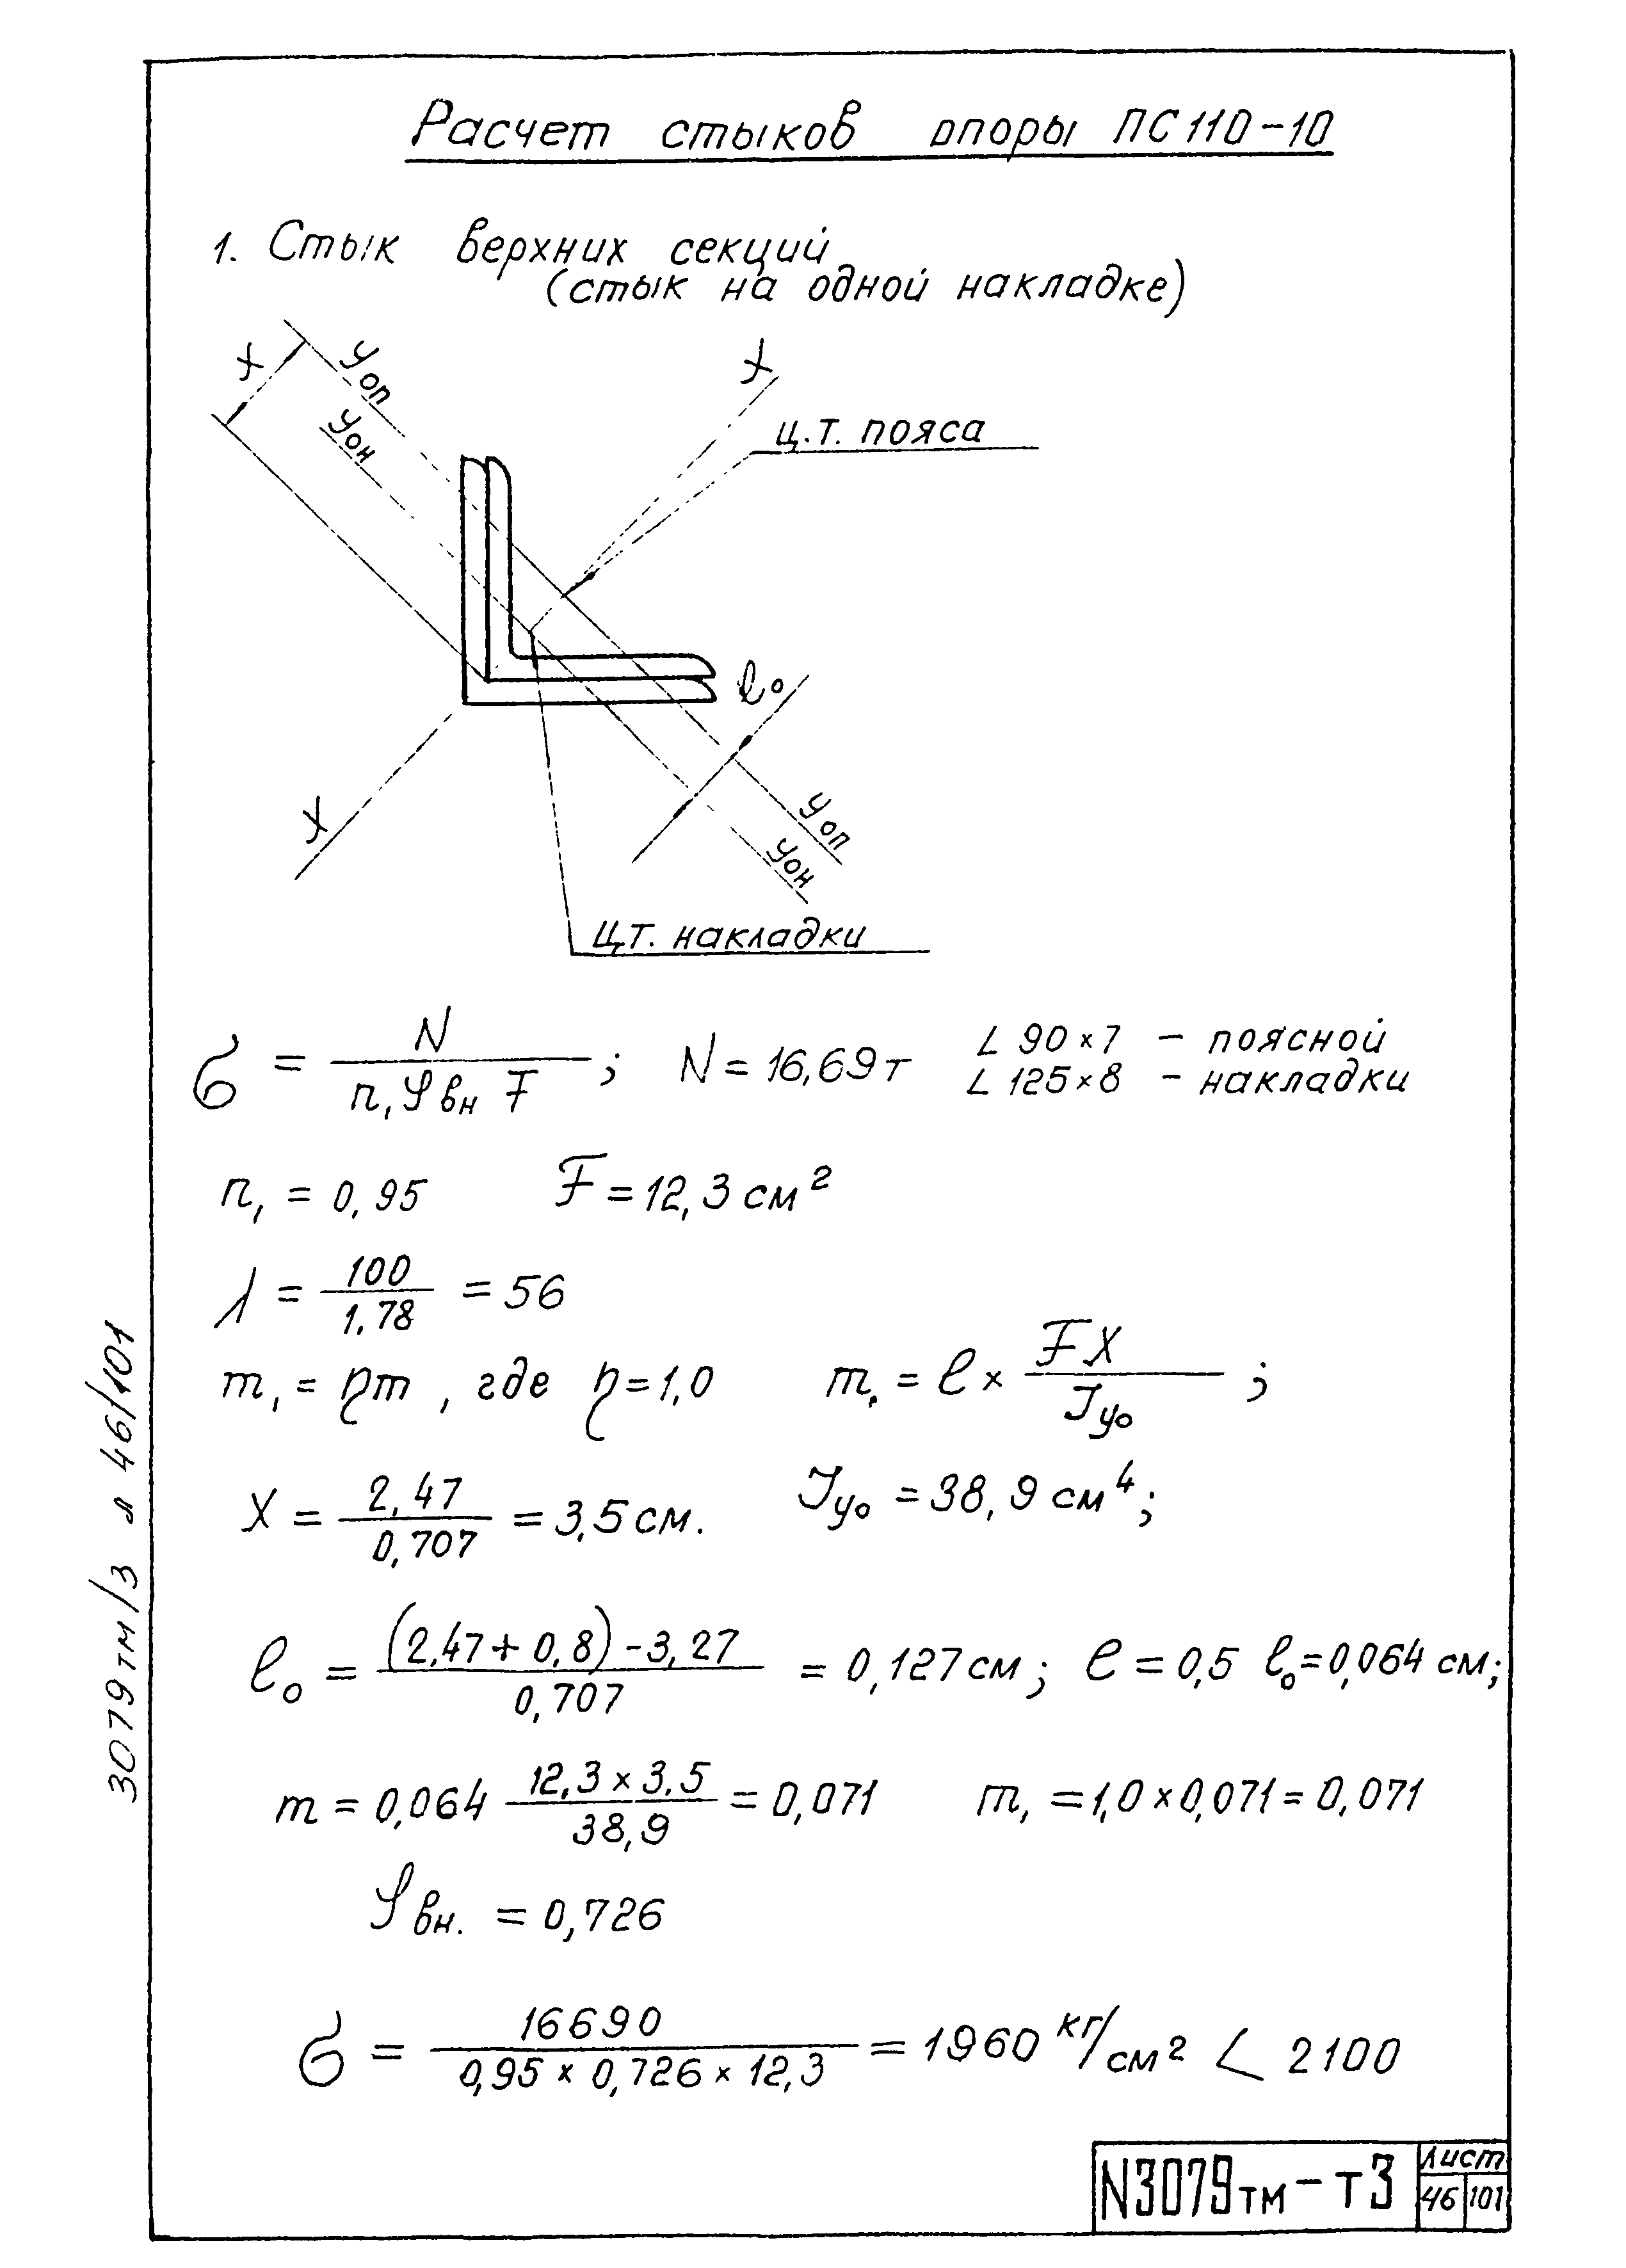 Расчет стыков опоры ПС110-10
1. Стык верхних секций
(стык на одной накладке)
x
yоп
yон
x
ц.т. пояса
lо
x
yоп
yон
ц.т. накладки
σ = N / n₁ φвн F ; N = 16,69 т
∟ 90×7 – поясной
∟ 125×8 – накладки
n₁ = 0,95 F = 12,3 см²
λ = 100 / 1,78 = 56
m₁ = ηm , где η = 1,0 m. = e × FX / Jyo ;
X = 2,47 / 0,707 = 3,5 см. Jyo = 38,9 см⁴;
lо = (2,47 + 0,8) - 3,27 / 0,707 = 0,127 см; e = 0,5 lо = 0,064 см;
m = 0,064 12,3 × 3,5 / 38,9 = 0,071 m₁ = 1,0 × 0,071 = 0,071
φвн. = 0,726
σ = 16690 / 0,95 × 0,726 × 12,3 = 1960 кг/см² < 2100
3079тм/3 л 46/101
N3079тм-т3
лист
46 101